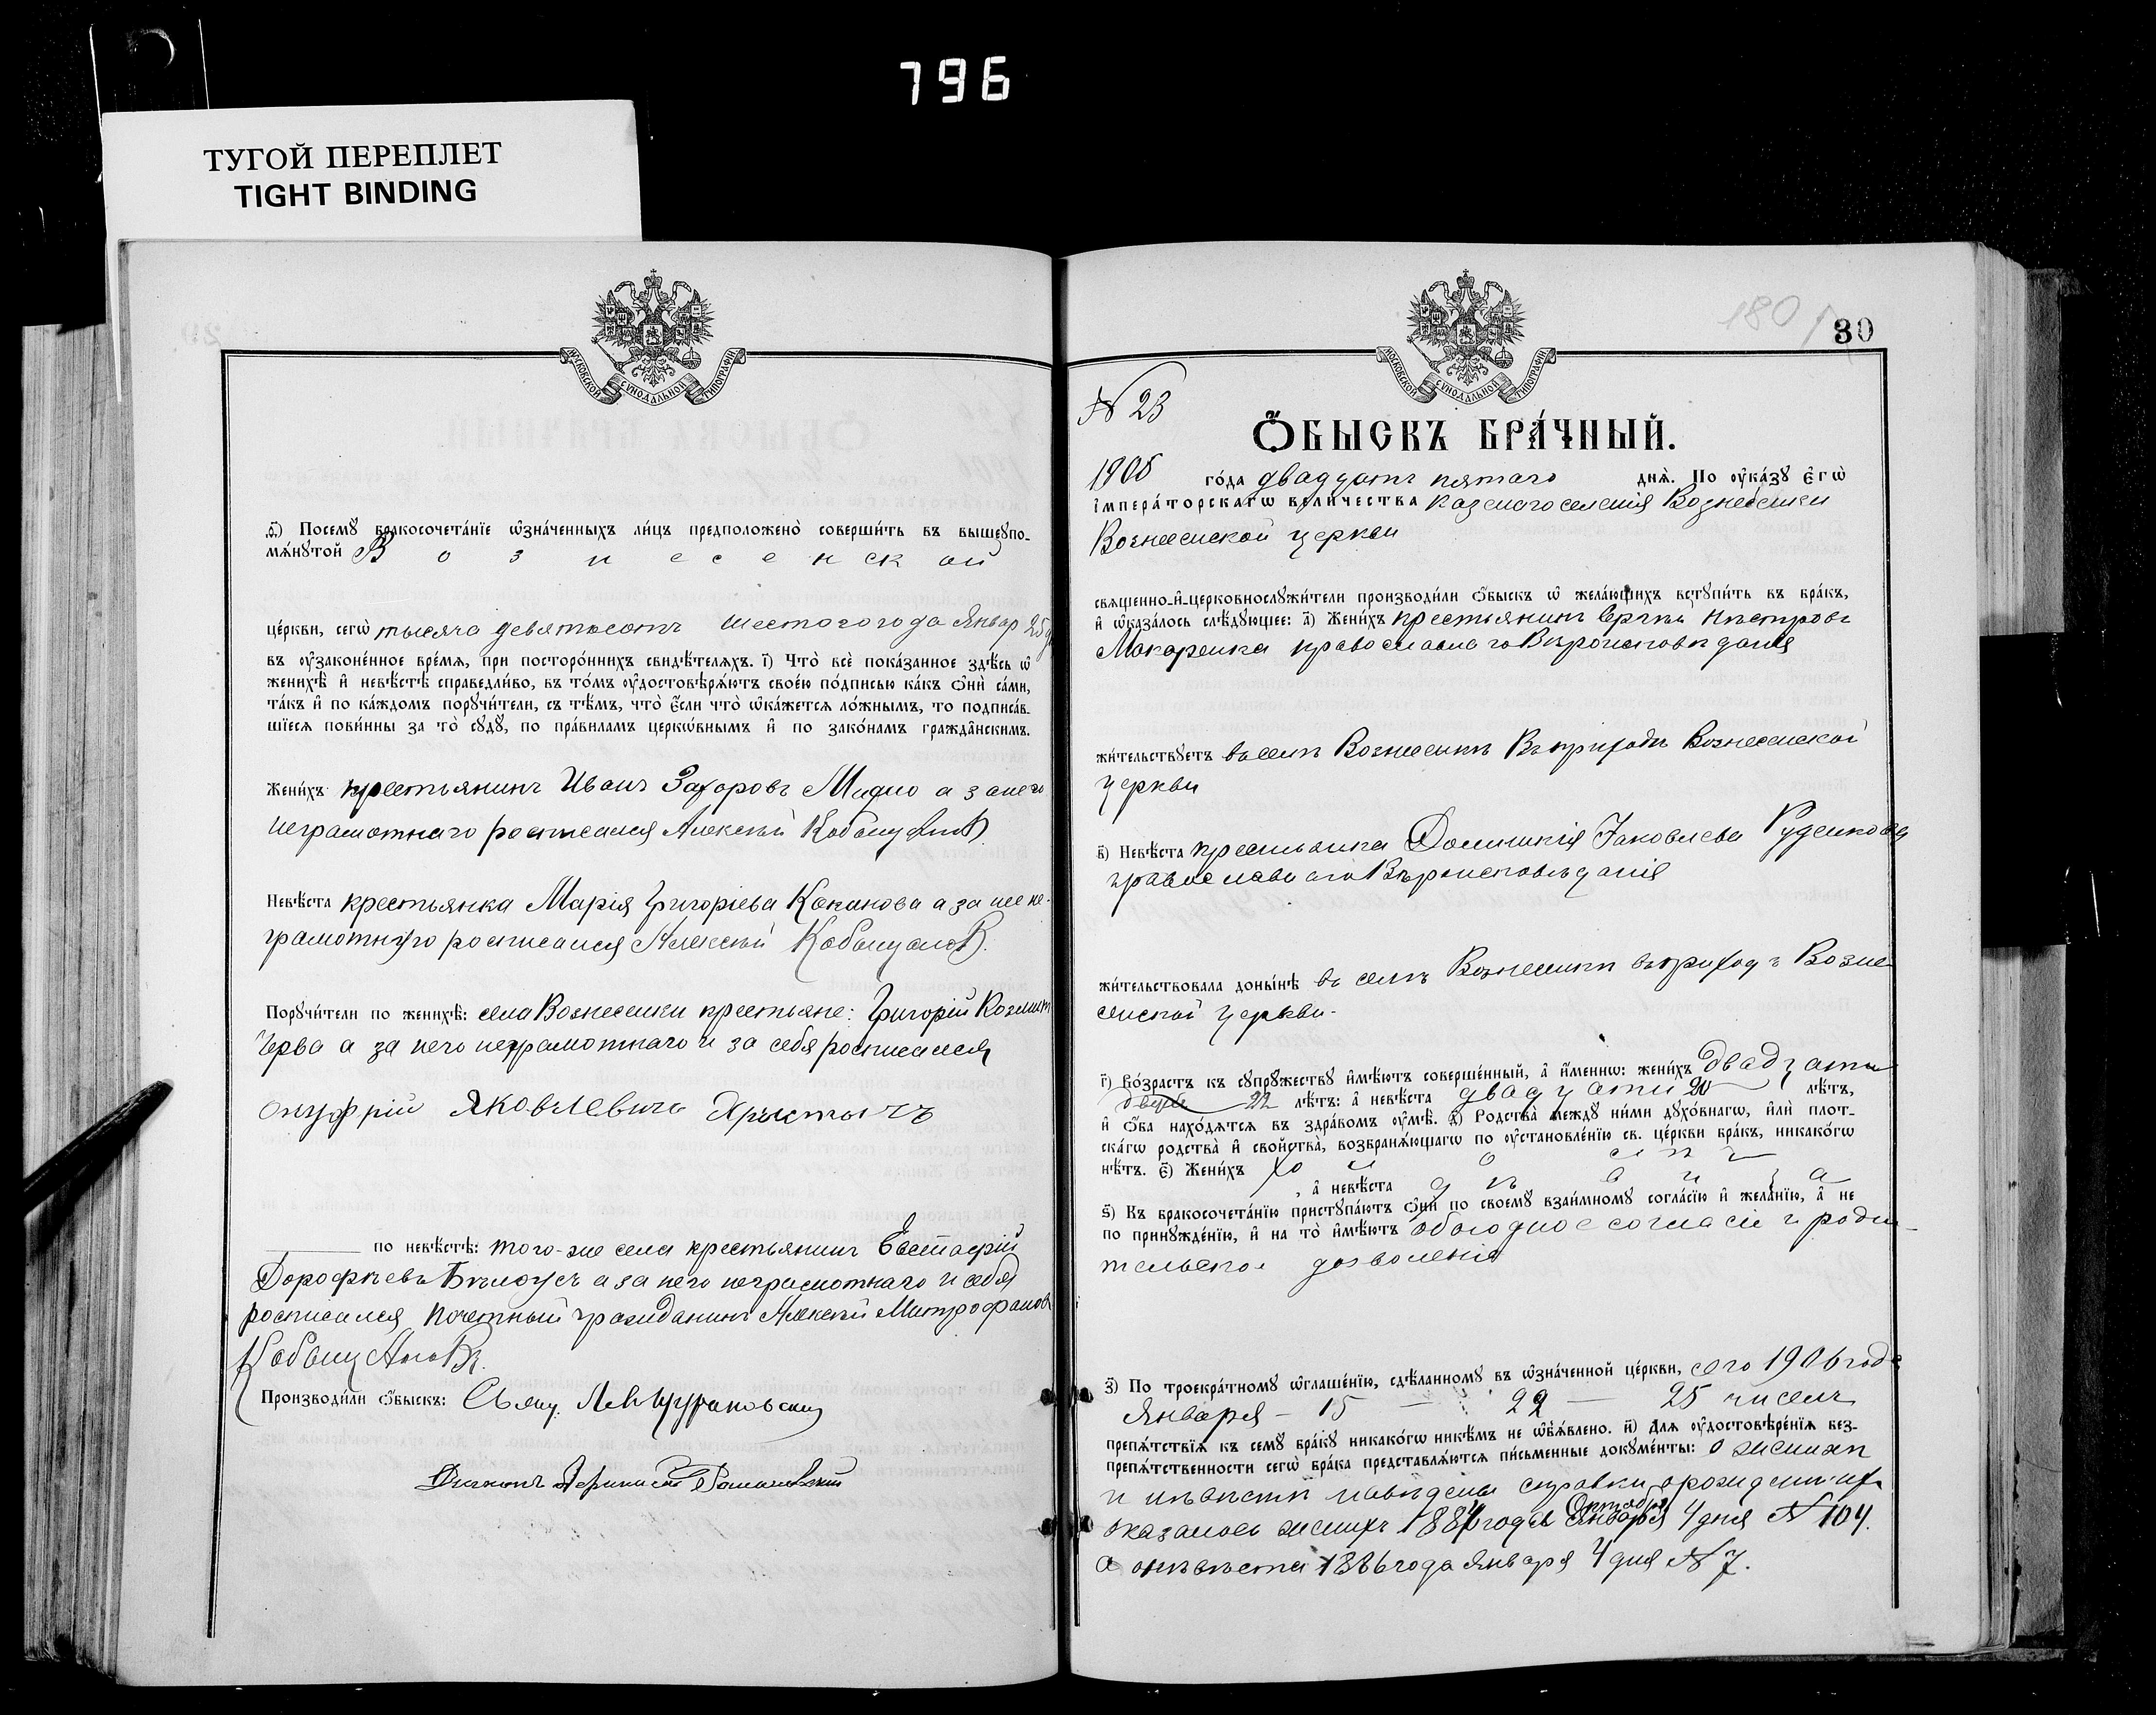 796
ТУГОЙ ПЕРЕПЛЕТ
TIGHT BINDING
МОСКОВСКОЙ СѴНОДАЛЬНОЙ ТИПОГРАФІИ
ѳ҃) Посемꙋ бракосочета́нїе ѡзна́ченныхъ ли́цъ предположено̀ соверши́ть въ вышеꙋпо-
мѧ́нꙋтой Вознесенской
це́ркви, сегѡ̀ тысяча девятьсотъ шестого года Январ 25 д
въ ᲂу҆зако́ненное вре́мѧ, при посторо́ннихъ свидѣ́телѧхъ. і҃) Что̀ всѐ пока́занное здѣ́сь ѡ҆
женихѣ̀ и҆ невѣ́стѣ справедли́во, въ то́мъ ᲂу҆достовѣрѧ́ютъ свое́ю по́дписью ка́къ ѻ҆нѝ са́ми,
та́къ и҆ по ка́ждомъ порꙋчи́тели, съ тѣ́мъ, что̀ є҆́сли что̀ ѡ҆ка́жетсѧ ло́жнымъ, то подписа́в-
шїесѧ пови́нны за то̀ сꙋдꙋ̀, по пра́виламъ церкѡ́внымъ и҆ по зако́намъ гражда̂нскимъ.
Жени́хъ крестьянинъ Иванъ Захоровъ Мидно а за него
неграмотнаго росписался Алексѣй Кобыщановъ
Невѣ́ста крестьянка Марія Григоріева Коканова а за нее не-
грамотную росписался Алексѣй Кобыщановъ.
Порꙋчи́тели по женихѣ̀: села Вознесенки крестьяне: Григорій Козмит
Черва а за него неграмотнаго и за себя росписался
Онуфрій Яковлевичъ Христычъ
по невѣ́стѣ: того-же села крестьянинъ Евстафій
Дорофѣевъ Бѣлоусъ а за него неграмотнаго и себя
росписался почетный гражданинъ Алексѣй Митрофанов
Кобыщановъ.
Производи́ли ѻ҆́быскъ: Свящ.
Діаконъ
180
30
МОСКОВСКОЙ СѴНОДАЛЬНОЙ ТИПОГРАФІИ
№ 23
Ѻ҆БЫСКЪ БРА́ЧНЫЙ.
1906 го́да двадцать пятаго днѧ̀. По ᲂу҆ка́зꙋ є҆гѡ̀
і҆мпера́торскагѡ вели́чества казеннаго селенія Вознесенки
Вознесенской церкви
свѧще́нно-и҆-церковнослꙋжи́тели производи́ли ѻ҆́быскъ ѡ҆ жела́ющихъ встꙋпи́ть въ бра́къ,
и҆ ѡ҆каза́лось слѣ́дꙋющее: а҃) Жени́хъ крестьянинъ Петровъ
Макаренко православнаго Вѣроисповѣданія
жи́тельствꙋетъ въ селѣ Вознесенкѣ въ приходѣ Вознесенской
церкви
в҃) Невѣ́ста крестьянка Домникія Іаковлева Руденкова
православнаго Вѣроисповѣданія
жи́тельствовала доны́нѣ въ селѣ Вознесенкѣ въ приходѣ Возне-
сенской церкви.
г҃) Во́зрастъ къ сꙋпрꙋ́жествꙋ и҆мѣ́ютъ соверше́нный, а҆ и҆́меннѡ: жени́хъ двадцати
двухъ 22 лѣ́тъ: а҆ невѣ́ста двадцати 20 лѣ́тъ,
и҆ ѻ҆́ба нахо́дѧтсѧ въ здра́вомъ ᲂу҆мѣ̀. д҃) Родства̀ междꙋ ни́ми дꙋхо́внагѡ, и҆лѝ плот-
ска́гѡ родства̀ и҆ сво́йства̀, возбранѧ́ющагѡ по ᲂу҆становле́нїю св. це́ркви бра́къ, никако́гѡ
нѣ́тъ. є҃) Жени́хъ холостъ
, а҆ невѣ́ста дѣвица
ѕ҃) Къ бракосочета́нїю пристꙋпа́ютъ ѻ҆нѝ по своемꙋ̀ взаи́мномꙋ согла́сїю и҆ жела́нїю, а҆ не
по принꙋжде́нїю, и҆ на то̀ и҆мѣ́ютъ обоюдное согласіе и роди-
тельское дозволеніе
з҃) По троекра́тномꙋ ѡ҆глаше́нїю, сдѣ́ланномꙋ въ ѡ҆зна́ченной це́ркви, сего 1906 года
Января - 15 - 22 - 25 числъ
препѧ́тствїѧ къ семꙋ̀ бра́кꙋ никако́гѡ никѣ́мъ не ѡ҆б̾ѧ́влено. и҃) Длѧ ᲂу҆достовѣре́нїѧ без-
препѧ́тственности сегѡ̀ бра́ка представлѧ́ютсѧ пи́сьменные докꙋме́нты: о женихѣ
и невѣстѣ наведены справки о рожденіи ихъ
оказалось женихъ 1884 года Октября Января 4 дня № 104.
а невѣста 1886 года Января 4 дня № 7.